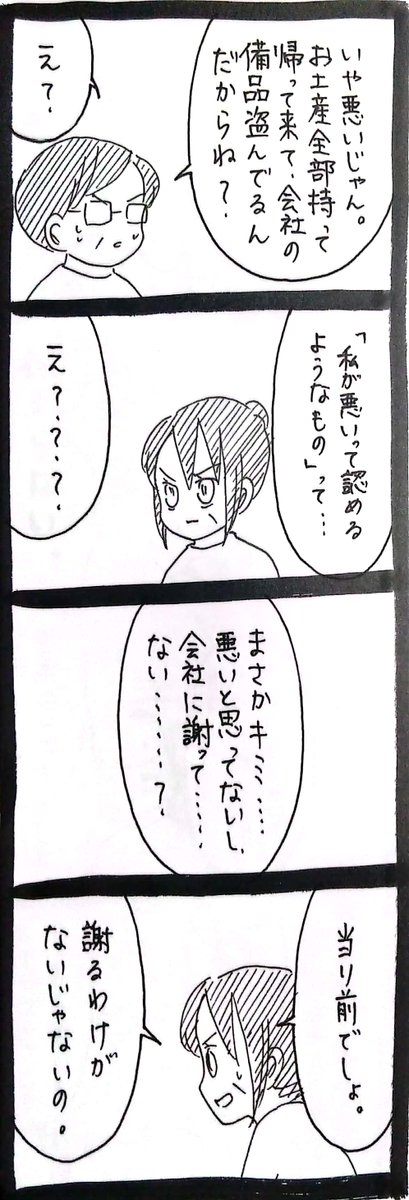 いや悪いじゃん。
お土産全部持って
帰って来て、会社の
備品盗んでるん
だからね？
え？
「私が悪いって認める
ようなもの」って…
え？？？？
まさかキミ……
悪いと思ってないし、
会社に謝って……
ない………？
当り前でしょ。
謝るわけが
ないじゃないの。